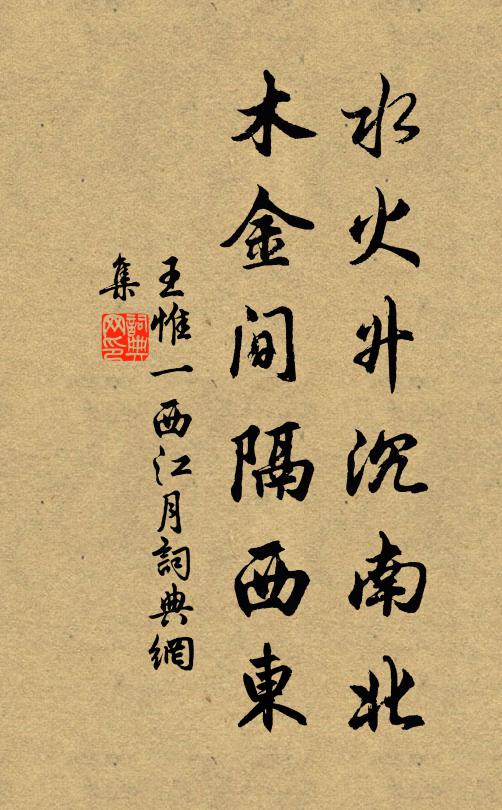 水火升沉南北
木金间隔西東
王惟一西江月詞典網
集
詞典
网印